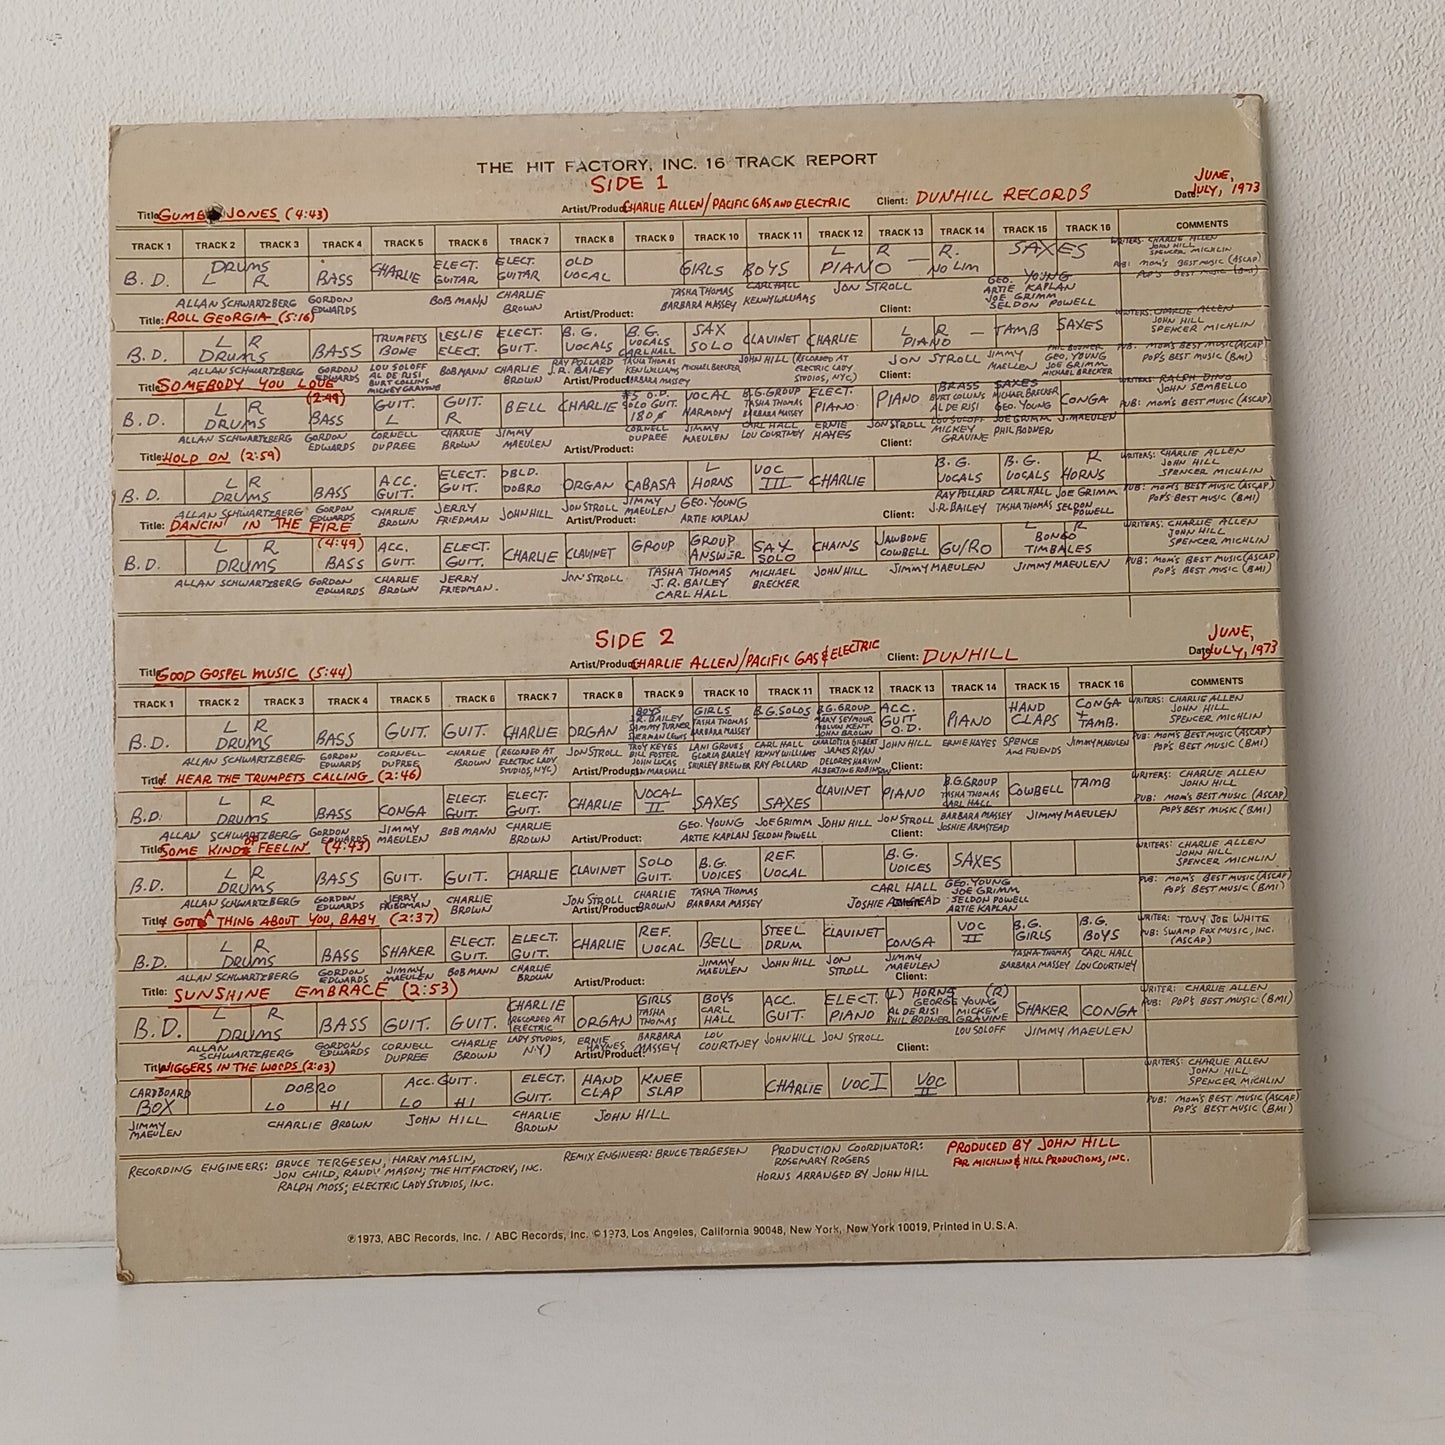 THE HIT FACTORY, INC. 16 TRACK REPORT
SIDE 1
Title: GUMBO JONES (4:43) Artist/Product: CHARLIE ALLEN/PACIFIC GAS AND ELECTRIC Client: DUNHILL RECORDS Date: JUNE, JULY, 1973
TRACK 1 TRACK 2 TRACK 3 TRACK 4 TRACK 5 TRACK 6 TRACK 7 TRACK 8 TRACK 9 TRACK 10 TRACK 11 TRACK 12 TRACK 13 TRACK 14 TRACK 15 TRACK 16 COMMENTS
B.D. L DRUMS R BASS CHARLIE ELECT. GUITAR ELECT. GUITAR OLD VOCAL GIRLS BOYS L PIANO R — R. NO LIM SAXES WRITERS: CHARLIE ALLEN JOHN HILL SPENCER MICHLIN
PUB: MOM'S BEST MUSIC (ASCAP) POP'S BEST MUSIC (BMI)
ALLAN SCHWARTZBERG GORDON EDWARDS BOB MANN CHARLIE BROWN TASHA THOMAS BARBARA MASSEY CARL HALL KENNY WILLIAMS JON STROLL GEO. YOUNG ARTIE KAPLAN JOE GRIMM SELDON POWELL
Title: ROLL GEORGIA (5:16) Artist/Product: Client:
B.D. L R DRUMS BASS TRUMPETS BONE LESLIE ELECT. ELECT. GUIT. B.G. VOCALS B.G. VOCALS CARL HALL SAX SOLO CLAVINET CHARLIE L R PIANO — TAMB SAXES WRITERS: CHARLIE ALLEN JOHN HILL SPENCER MICHLIN
PUB: MOM'S BEST MUSIC (ASCAP) POP'S BEST MUSIC (BMI)
ALLAN SCHWARTZBERG GORDON EDWARDS LOU SOLOFF AL DE RISI BURT COLLINS MICKEY GRAVINE BOB MANN CHARLIE BROWN RAY POLLARD J.R. BAILEY TASHA THOMAS KEN WILLIAMS BARBARA MASSEY MICHAEL BRECKER JOHN HILL (RECORDED AT ELECTRIC LADY STUDIOS, NYC) JON STROLL JIMMY MAELLEN PHIL BODNER GEO. YOUNG JOE GRIMM MICHAEL BRECKER
Title: SOMEBODY YOU LOVE (2:49) Artist/Product: Client:
B.D. L R DRUMS BASS GUIT. L GUIT. R BELL CHARLIE SOLO GUIT. VOCAL HARMONY B.G. GROUP TASHA THOMAS BARBARA MASSEY ELECT. PIANO PIANO BRASS BURT COLLINS AL DE RISI SAXES MICHAEL BRECKER GEO. YOUNG CONGA WRITERS: RALPH DINO JOHN SEMBELLO
PUB: MOM'S BEST MUSIC (ASCAP) POP'S BEST MUSIC (BMI)
ALLAN SCHWARTZBERG GORDON EDWARDS CORNELL DUPREE CHARLIE BROWN JIMMY MAEULEN CORNELL DUPREE JIMMY MAEULEN CARL HALL LOU COURTNEY ERNIE HAYES JON STROLL LOU SOLOFF MICKEY GRAVINE JOE GRIMM PHIL BODNER J. MAEULEN
Title: HOLD ON (2:59) Artist/Product: Client:
B.D. L R DRUMS BASS ACC. GUIT. ELECT. GUIT. DBLD. DOBRO ORGAN CABASA L HORNS VOC III CHARLIE B.G. VOCALS B.G. VOCALS R HORNS WRITERS: CHARLIE ALLEN JOHN HILL SPENCER MICHLIN
PUB: MOM'S BEST MUSIC (ASCAP) POP'S BEST MUSIC (BMI)
ALLAN SCHWARTZBERG GORDON EDWARDS CHARLIE BROWN JERRY FRIEDMAN JOHN HILL JON STROLL JIMMY MAEULEN GEO. YOUNG ARTIE KAPLAN RAY POLLARD J.R. BAILEY CARL HALL TASHA THOMAS JOE GRIMM SELDON POWELL
Title: DANCIN' IN THE FIRE (4:49) Artist/Product: Client:
B.D. L R DRUMS BASS ACC. GUIT. ELECT. GUIT. CHARLIE CLAVINET GROUP GROUP ANSWER SAX SOLO CHAINS JAWBONE COWBELL GU/RO L R BONGO TIMBALES WRITERS: CHARLIE ALLEN JOHN HILL SPENCER MICHLIN
PUB: MOM'S BEST MUSIC (ASCAP POP'S BEST MUSIC (BMI)
ALLAN SCHWARTZBERG GORDON EDWARDS CHARLIE BROWN JERRY FRIEDMAN. JON STROLL TASHA THOMAS J.R. BAILEY CARL HALL MICHAEL BRECKER JOHN HILL JIMMY MAEULEN JIMMY MAEULEN
SIDE 2
Title: GOOD GOSPEL MUSIC (5:44) Artist/Product: CHARLIE ALLEN/PACIFIC GAS & ELECTRIC Client: DUNHILL Date: JUNE, JULY, 1973
TRACK 1 TRACK 2 TRACK 3 TRACK 4 TRACK 5 TRACK 6 TRACK 7 TRACK 8 TRACK 9 TRACK 10 TRACK 11 TRACK 12 TRACK 13 TRACK 14 TRACK 15 TRACK 16 COMMENTS
B.D. L R DRUMS BASS GUIT. GUIT. CHARLIE ORGAN BOYS J.R. BAILEY SAMMY TURNER SHERMAN LEWIS GIRLS TASHA THOMAS BARBARA MASSEY B.G. SOLOS B.G. GROUP MARY SEYMOUR MELVIN KENT JOHN BROWN ACC. GUIT. O.D. PIANO HAND CLAPS CONGA + TAMB. WRITERS: CHARLIE ALLEN JOHN HILL SPENCER MICHLIN
PUB: MOM'S BEST MUSIC (ASCAP) POP'S BEST MUSIC (BMI)
ALLAN SCHWARTZBERG GORDON EDWARDS CORNELL DUPREE CHARLIE BROWN (RECORDED AT ELECTRIC LADY STUDIOS, NYC) JON STROLL TROY KEYES BILL FOSTER JOHN LUCAS RON MARSHALL LANI GROVES GLORIA BARLEY SHIRLEY BREWER CARL HALL KENNY WILLIAMS RAY POLLARD CHARLOTTA GILBERT JAMES RYAN DELORES HARVIN ALBERTINE ROBINSON JOHN HILL ERNIE HAYES SPENCE AND FRIENDS JIMMY MAEULEN
Title: I HEAR THE TRUMPETS CALLING (2:46) Artist/Product: Client:
B.D. L R DRUMS BASS CONGA ELECT. GUIT. ELECT. GUIT. CHARLIE VOCAL II SAXES SAXES CLAVINET PIANO B.G. GROUP TASHA THOMAS CARL HALL COWBELL TAMB WRITERS: CHARLIE ALLEN JOHN HILL
PUB: MOM'S BEST MUSIC (ASCAP) POP'S BEST MUSIC (BMI)
ALLAN SCHWARTZBERG GORDON EDWARDS JIMMY MAEULEN BOB MANN CHARLIE BROWN GEO. YOUNG ARTIE KAPLAN JOE GRIMM SELDON POWELL JOHN HILL JON STROLL BARBARA MASSEY JOSHIE ARMSTEAD JIMMY MAEULEN
Title: SOME KIND OF FEELIN' (4:43) Artist/Product: Client:
B.D. L R DRUMS BASS GUIT. GUIT. CHARLIE CLAVINET SOLO GUIT. B.G. VOICES REF. VOCAL B.G. VOICES SAXES WRITERS: CHARLIE ALLEN JOHN HILL SPENCER MICHLIN
PUB: MOM'S BEST MUSIC (ASCAP) POP'S BEST MUSIC (BMI)
ALLAN SCHWARTZBERG GORDON EDWARDS JERRY FRIEDMAN CHARLIE BROWN JON STROLL CHARLIE BROWN TASHA THOMAS BARBARA MASSEY CARL HALL JOSHIE ARMSTEAD GEO. YOUNG JOE GRIMM SELDON POWELL ARTIE KAPLAN
Title: I GOT A THING ABOUT YOU, BABY (2:37)
B.D. L R DRUMS BASS SHAKER ELECT. GUIT. ELECT. GUIT. CHARLIE REF. VOCAL BELL STEEL DRUM CLAVINET CONGA VOC II B.G. GIRLS B.G. BOYS WRITER: TONY JOE WHITE
PUB: SWAMP FOX MUSIC, INC. (ASCAP)
ALLAN SCHWARTZBERG GORDON EDWARDS JIMMY MAEULEN BOB MANN CHARLIE BROWN JIMMY MAEULEN JOHN HILL JON STROLL JIMMY MAEULEN TASHA THOMAS BARBARA MASSEY CARL HALL LOU COURTNEY
Title: SUNSHINE EMBRACE (2:53) Artist/Product: Client:
B.D. L R DRUMS BASS GUIT. GUIT. CHARLIE (RECORDED AT ELECTRIC LADY STUDIOS, NY) ORGAN GIRLS TASHA THOMAS BOYS CARL HALL ACC. GUIT. ELECT. PIANO (L) HORNS (R) GEORGE YOUNG AL DE RISI MICKEY GRAVINE PHIL BODNER SHAKER CONGA WRITER: CHARLIE ALLEN
PUB: POP'S BEST MUSIC (BMI)
ALLAN SCHWARTZBERG GORDON EDWARDS CORNELL DUPREE CHARLIE BROWN ERNIE HAYNES BARBARA MASSEY LOU COURTNEY JOHN HILL JON STROLL LOU SOLOFF JIMMY MAEULEN
Title: NIGGERS IN THE WOODS (2:03) Artist/Product: Client:
CARDBOARD BOX DOBRO LO HI ACC. GUIT. LO HI ELECT. GUIT. HAND CLAP KNEE SLAP CHARLIE VOC I VOC II WRITERS: CHARLIE ALLEN JOHN HILL SPENCER MICHLIN
PUB: MOM'S BEST MUSIC (ASCAP) POP'S BEST MUSIC (BMI)
JIMMY MAEULEN CHARLIE BROWN JOHN HILL CHARLIE BROWN JOHN HILL
RECORDING ENGINEERS: BRUCE TERGESEN, HARRY MASLIN, JON CHILD, RANDY MASON; THE HIT FACTORY, INC.
RALPH MOSS; ELECTRIC LADY STUDIOS, INC.
REMIX ENGINEER: BRUCE TERGESEN
PRODUCTION COORDINATOR: ROSEMARY ROGERS
HORNS ARRANGED BY JOHN HILL
PRODUCED BY JOHN HILL
FOR MICHLIN & HILL PRODUCTIONS, INC.
℗1973, ABC Records, Inc. / ABC Records, Inc. ©1973, Los Angeles, California 90048, New York, New York 10019, Printed in U.S.A.